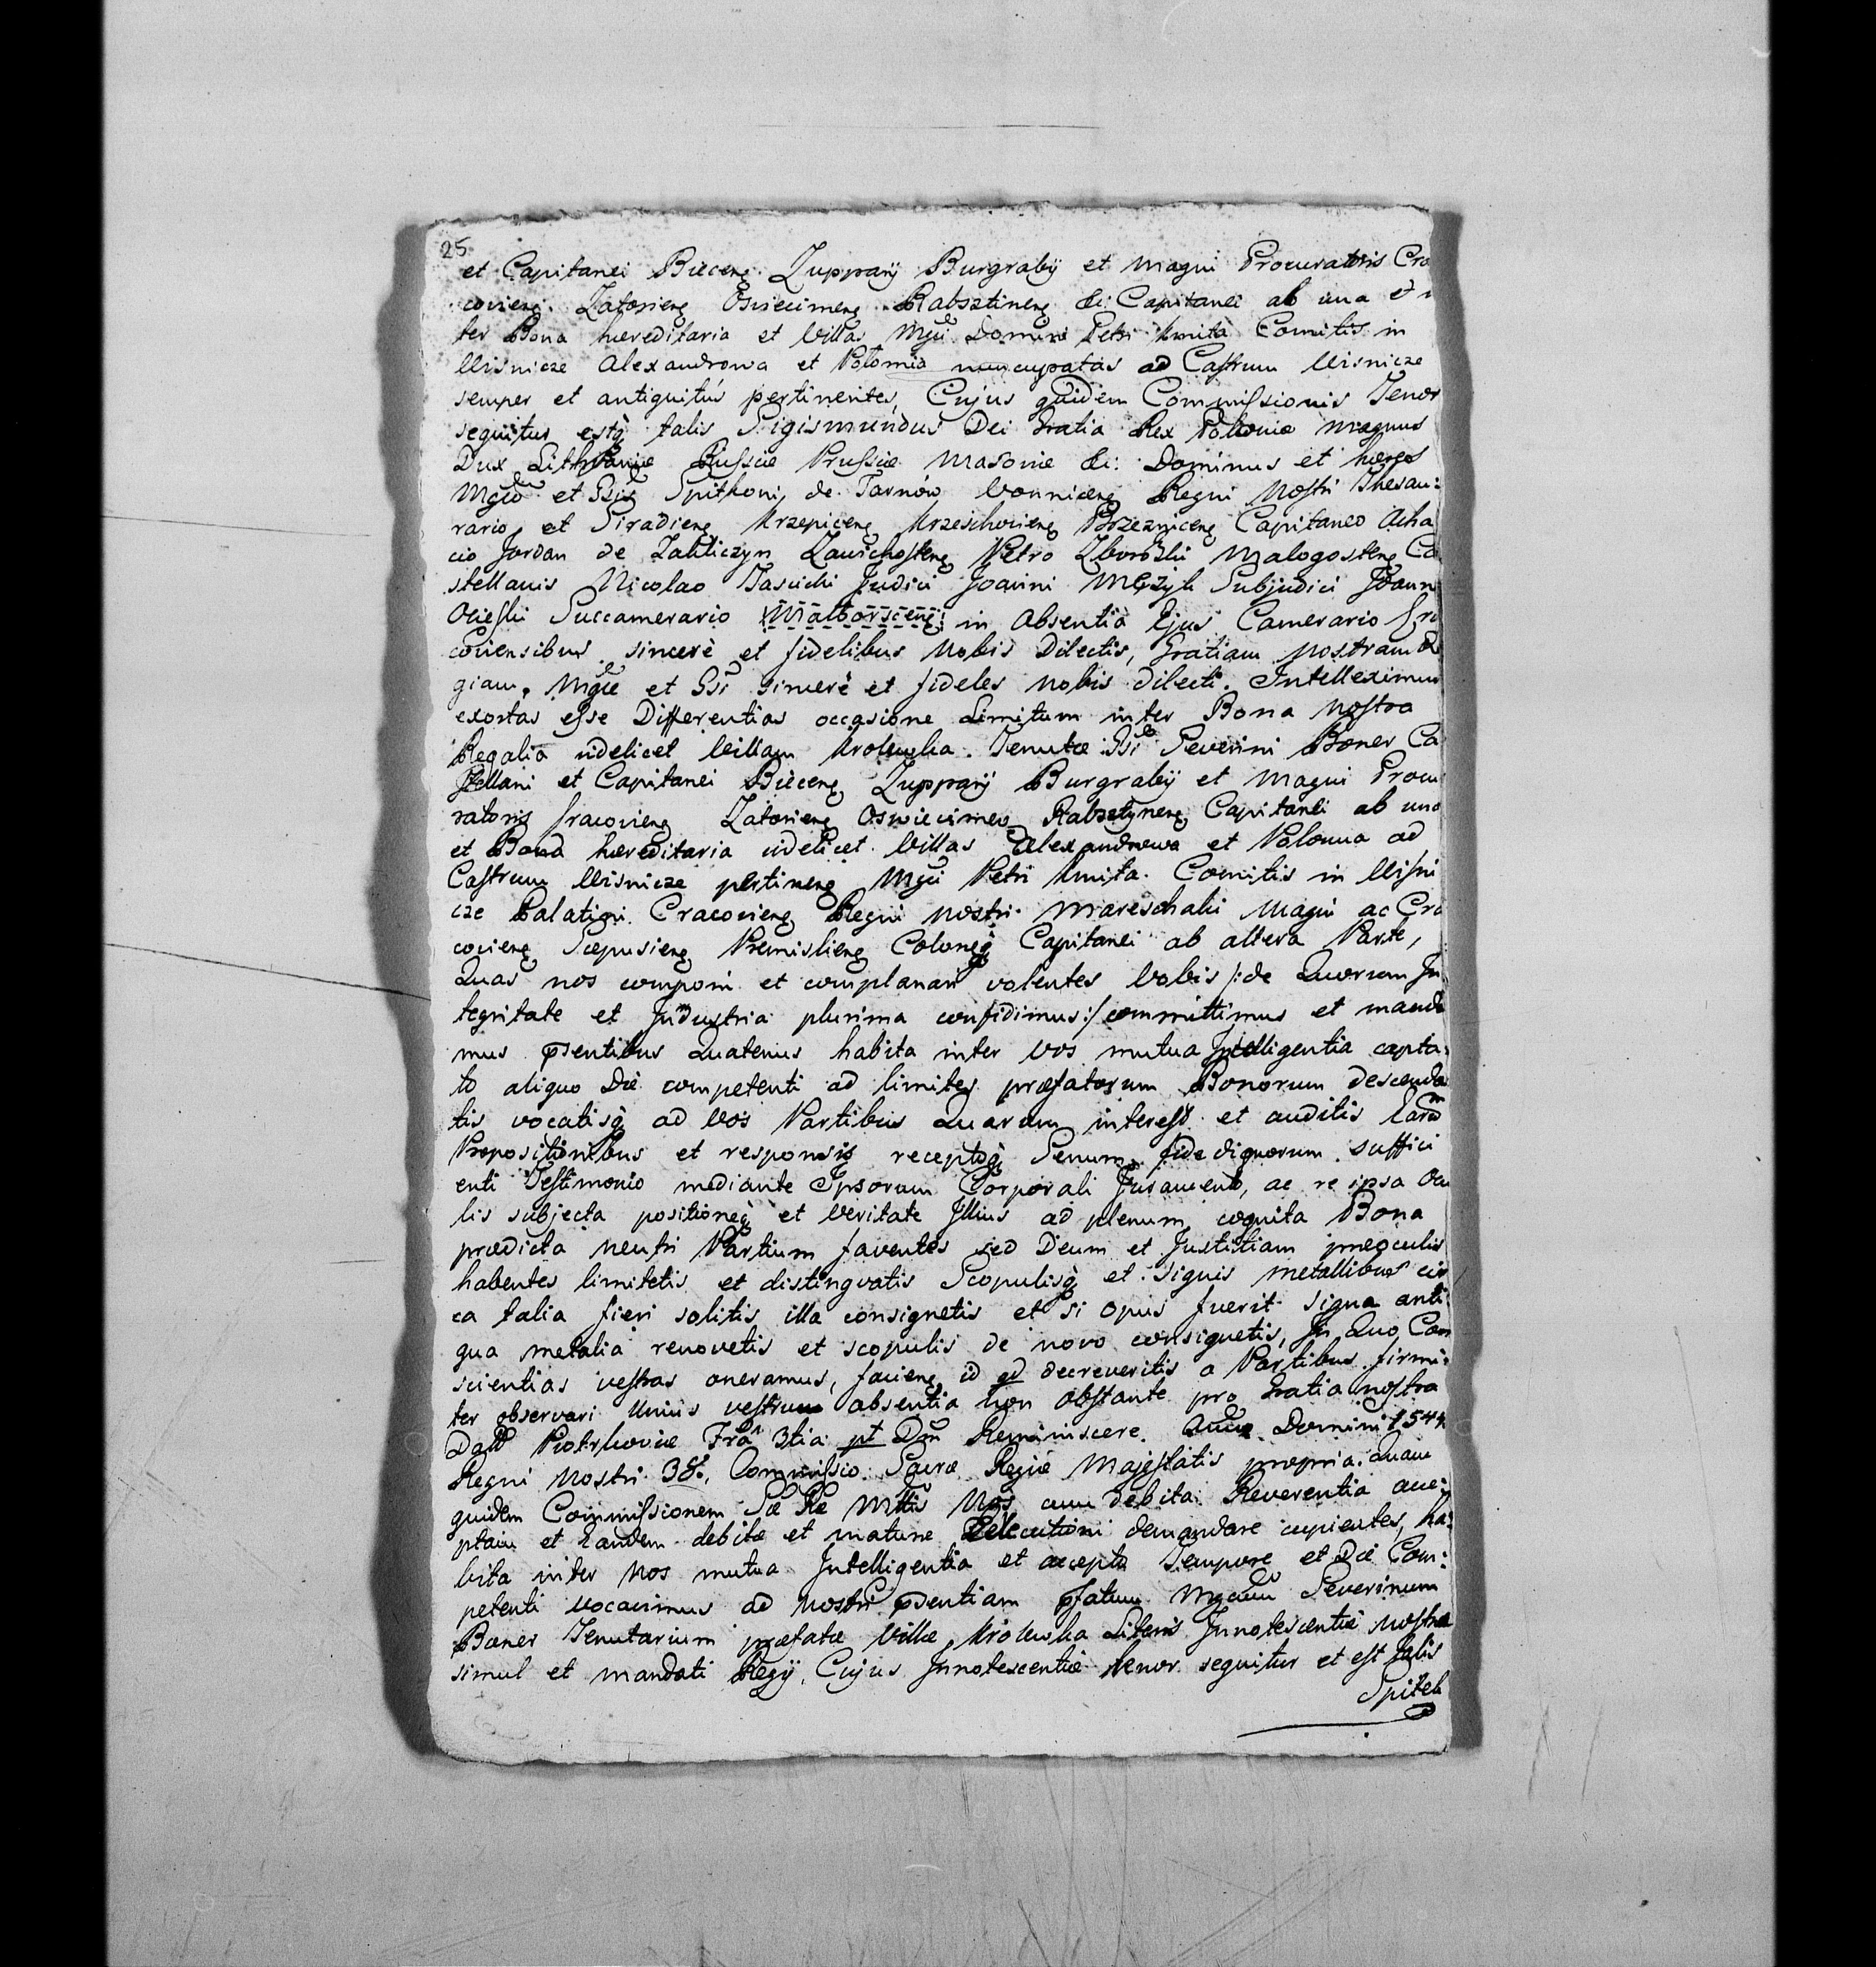 25
et Capitanei Biecens. Zuppary Burgraby et Magni Procuratoris Cra
coviens. Zatoriens Osviecimens Rabsztinens &: Capitanei ab una et
ter Bona hæreditaria et Villas Mgci Domini Petri Kmita Comitis in
Wisnicze Alexandrowa et Polomia nuncupatas ad Castrum Wisnicze
semper et antiquitùs pertinentes, Cujus quidem Commissionis Tenor
sequitur estq talis Sigismundus Dei Gratia Rex Poloniæ Magnus
Dux Lithvaniæ Russiæ Prussiæ Masoviæ &: Dominus et hæres
Mgco et Gsis Spithoni de Tarnów Voyniceng Regni Nostri Thesau:
rario, et Siradieng Krzepiceng Krzeschovieng Brzezniceng Capitaneo Acha
cio Jordan de Zakliczyn Zawichosteng Petro Zborowski Malogosteng Ca
stellanis Nicolao Jasicki Judici Joanni Mężyk Subjudici Joann
Ocieski Succamerario Malborsceng: in Absentia Ejus Camerario Cra
coviensibus sincerè et fidelibus Nobis Dilectis, Gratiam Nostram Re
giam, Mgce et Gsi sincerè et fideles nobis dilecti. Intelleximus
exortas esse Differentias occasione Limitum inter Bona Nostra
Regalia videlicet Villam Krolewska Tenutæ Gsi Severini Boner Ca
stellani et Capitanei Bieceng Zuppary Burgraby et Magni Procu
ratoris Cracovieng Zatorieng Osviecimeng Rabsztyneng Capitanei ab una
et Bona hæreditaria videlicet Villas Alexandrowa et Poloma ad
Castrum Wisnicze pertineng Mgci Petri Kmita Comitis in Wisni
cze Palatini Cracovieng Regni nostri Mareschalci Magni ac Cra
covieng Scepusieng Premislieng Colonegq Capitanei ab altera Parte,
Quas nos componi et complanari volentes Vobis /:de Quorum In
tegritate et Industria plurima confidimus:/ committimus et manda
mus psentibus Quatenus habita inter vos mutua Intelligentia capta:
to aliquo Die competenti ad limites præfatorum Bonorum descenda
tis vocatisq ad Vos Partibus Quarum interest et auditis Earum
Propositionibus et responsis receptoq Senum fide dignorum suffici
enti Testimonio mediante Ipsorum Corporali Juramento, ac re ipsa Ocu
lis subjecta positioneq et Veritate Illius ad plenum cognita Bona
prædicta neutri Partium faventes sed Deum et Justitiam præ oculis
habentes limitetis et distingvatis Scopulisq et signis metallibus cir
ca talia fieri solitis illa consignetis et si opus fuerit signa anti:
qua metalia renovetis et scopulis de novo consignetis, In Quo Con
scientias vestras oneramus, facieng id qd decreveritis a Partibus firmi:
ter observari Unius vestrum absentia non obstante pro Gratia nostra
Datt Piotrkoviæ Fra 3tia pt Dm Reminiscere. Anno Domini 1544
Regni Nostri 38. Commissio Sacræ Regiæ Majestatis propria. Quam
quidem Commissionem Sæ Ræ Mttis Nos cum debita Reverentia acce:
ptam et Eandem debitæ et maturæ Executioni demandare cupientes, ha:
bita inter Nos mutua Intelligentia et accepto Tempore et Die Com:
petenti vocavimus ad Nostri psentiam pfatum Mgcum Severinum
Boner Tenutarium præfatæ Villæ Krolewska Literis Innotescentiæ Nostræ
simul et mandati Regij, Cujus Innotescentiæ tenor sequitur et est talis
Spitek